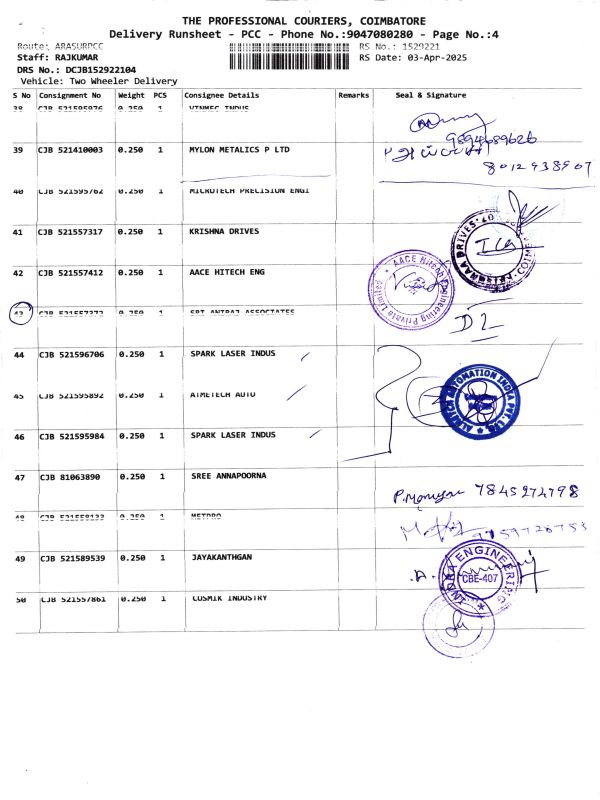 THE PROFESSIONAL COURIERS, COIMBATORE
Delivery Runsheet - PCC - Phone No.:9047080280 - Page No.:4
Route: ARASURPCC
RS No.: 1529221
Staff: RAJKUMAR
RS Date: 03-Apr-2025
DRS No.: DCJB152922104
Vehicle: Two Wheeler Delivery
S No Consignment No Weight PCS Consignee Details Remarks Seal & Signature
38 CJB 521595976 0.250 1 VINMEC INDUS
9894689626
39 CJB 521410003 0.250 1 MYLON METALICS P LTD
8012938907
40 CJB 521595762 0.250 1 MICROTECH PRECISION ENGI
41 CJB 521557317 0.250 1 KRISHNA DRIVES
42 CJB 521557412 0.250 1 AACE HITECH ENG
AACE Hitech Engineering Private Limited
43 CJB 521557373 0.250 1 SRI ANTRAJ ASSOCIATES
44 CJB 521596706 0.250 1 SPARK LASER INDUS
45 CJB 521595892 0.250 1 AIMETECH AUTO
AUTOMATION INDIA PVT. LTD.
46 CJB 521595984 0.250 1 SPARK LASER INDUS
47 CJB 81063890 0.250 1 SREE ANNAPOORNA
7845274798
48 CJB 521558133 0.250 1 METPRO
9759728753
49 CJB 521589539 0.250 1 JAYAKANTHGAN
INDRA ENGINEERING
CBE-407
50 CJB 521557861 0.250 1 COSMIK INDUSTRY